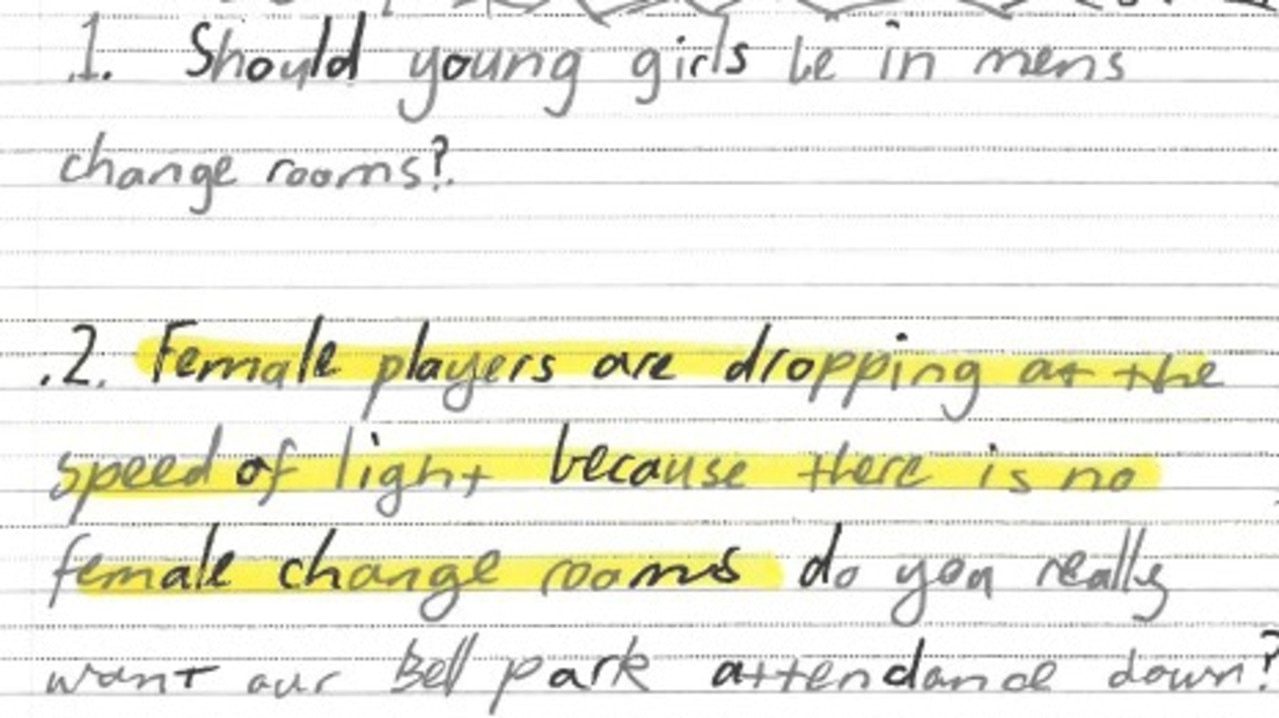 .1. Should young girls be in mens
change rooms?
.2. Female players are dropping at the
speed of light because there is no
female change rooms do you really
want our Bell park attendance down?